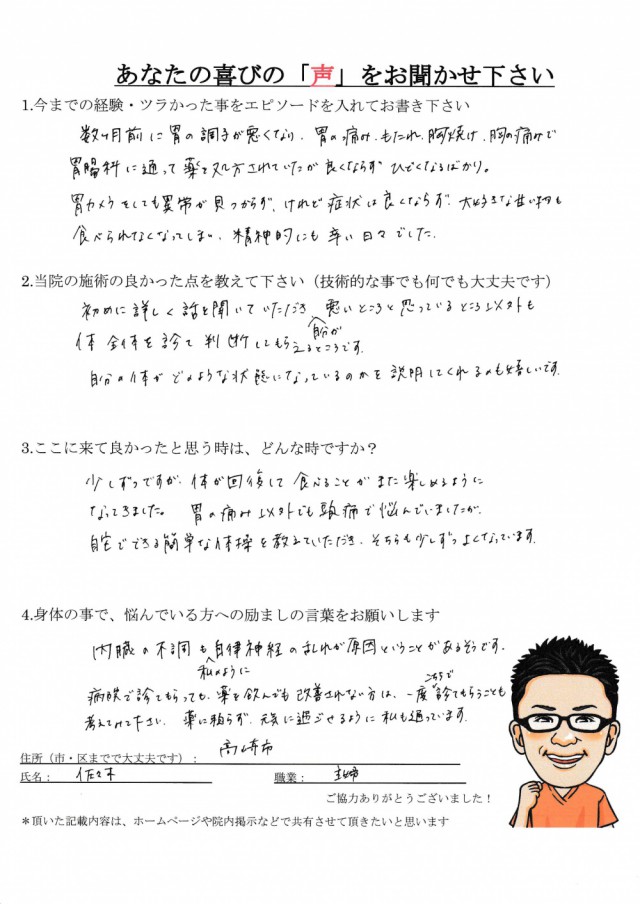 あなたの喜びの「声」をお聞かせ下さい
1.今までの経験・ツラかった事をエピソードを入れてお書き下さい
数ヶ月前に胃の調子が悪くなり、胃の痛み、もたれ、胸焼け、胸の痛みで
胃腸科に通って薬を処方されていたが良くならず ひどくなるばかり。
胃カメラをしても異常が見つからず、けれど症状は良くならず、大好きな甘い物も
食べられなくなってしまい、精神的にも辛い日々でした。
2.当院の施術の良かった点を教えて下さい（技術的な事でも何でも大丈夫です）
初めに詳しく話を聞いていただき 自分が悪いところと思っているところ以外も
体全体を診て判断してもらえるところです。
自分の体がどのような状態になっているのかを説明してくれるのも嬉しいです。
3.ここに来て良かったと思う時は、どんな時ですか？
少しずつですが、体が回復して食べることがまた楽しめるように
なってきました。 胃の痛み以外でも頭痛で悩んでいましたが、
自宅でできる簡単な体操を教えていただき、そちらも少しずつよくなっています。
4.身体の事で、悩んでいる方への励ましの言葉をお願いします
内臓の不調も自律神経の乱れが原因ということがあるそうです。
私のように
病院で診てもらっても、薬を飲んでも改善されない方は、一度こちらで診てもらうことも
考えてみて下さい。 薬に頼らず、元気に過ごせるように私も通っています。
住所（市・区までで大丈夫です）： 高崎市
氏名： 佐々木 職業： 主婦
ご協力ありがとうございました！
＊頂いた記載内容は、ホームページや院内掲示などで共有させて頂きたいと思います